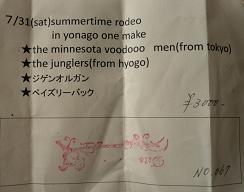 7/31(sat)summertime rodeo
in yonago one make
★the minnesota voodooo men(from tokyo)
★the junglers(from hyogo)
★ジゲンオルガン
★ペイズリーパック
¥3000-
NO.067